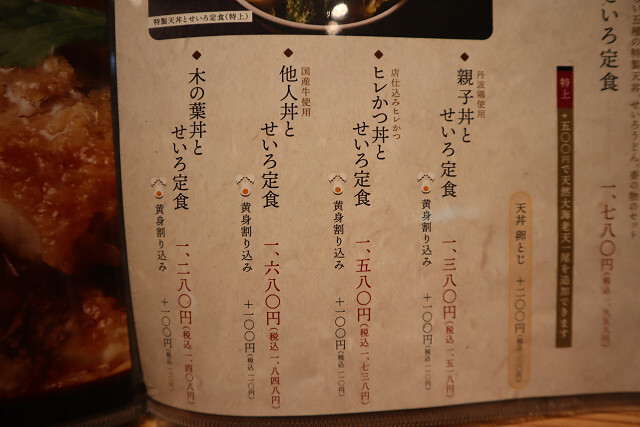 せいろ定食
一、七八〇円(税込一、九五八円)
特上
+五〇〇円で天然大海老天一尾を追加できます
天丼 卵とじ
+二〇〇円
特製天丼とせいろ定食(特上)
丹波鶏使用
◆親子丼と
せいろ定食
一、三八〇円(税込一、五一八円)
黄身割り込み
+一〇〇円(税込一一〇円)
店仕込みヒレかつ
◆ヒレかつ丼と
せいろ定食
一、五八〇円(税込一、七三八円)
黄身割り込み
+一〇〇円(税込一一〇円)
国産牛使用
◆他人丼と
せいろ定食
一、六八〇円(税込一、八四八円)
黄身割り込み
+一〇〇円(税込一一〇円)
◆木の葉丼と
せいろ定食
一、二八〇円(税込一、四〇八円)
黄身割り込み
+一〇〇円(税込一一〇円)